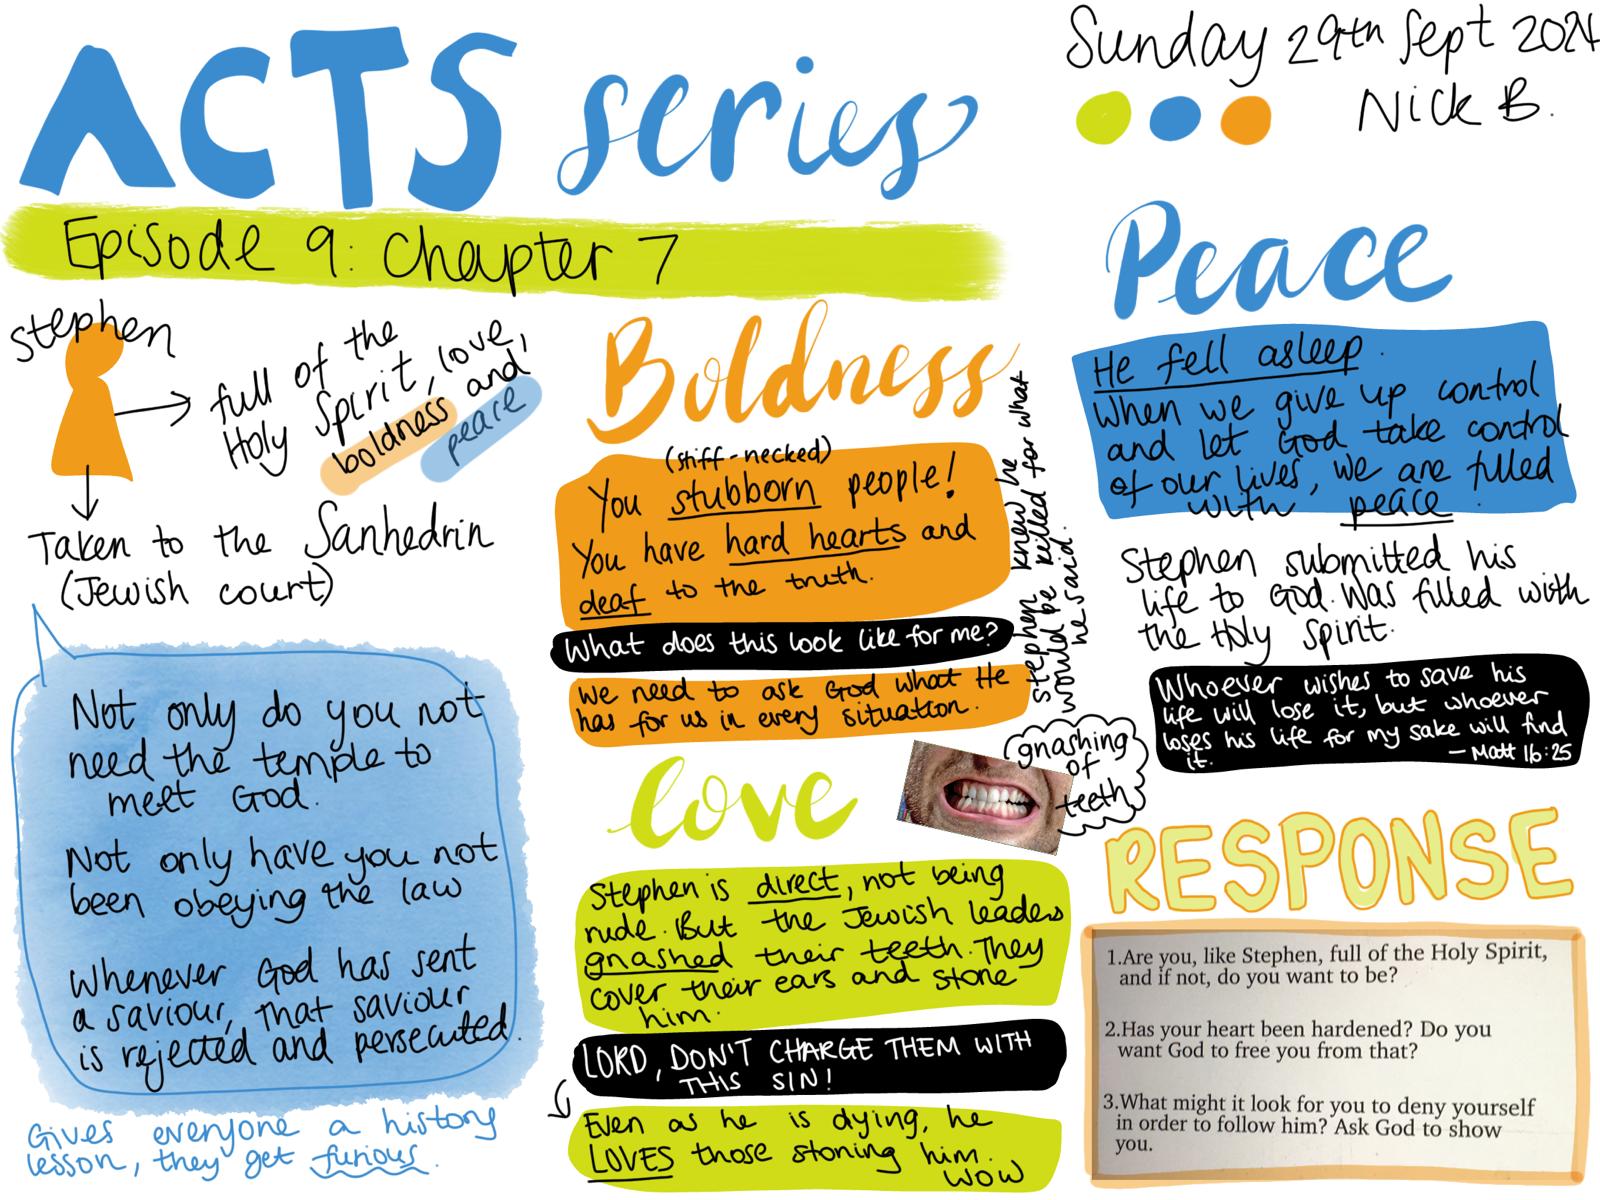 ACTS series
Sunday 29th Sept 2024
Nick B.
Episode 9: Chapter 7
Stephen
full of the
Holy Spirit, love,
boldness and
peace
Taken to the Sanhedrin
(Jewish court)
Not only do you not
need the temple to
meet God.
Not only have you not
been obeying the law
Whenever God has sent
a saviour, that saviour
is rejected and persecuted.
Gives everyone a history
lesson, they get furious.
Boldness
(stiff-necked)
You stubborn people!
You have hard hearts and
deaf to the truth.
What does this look like for me?
We need to ask God what He
has for us in every situation.
Stephen knew he
would be killed for what
he said.
Love
gnashing
of
teeth
Stephen is direct, not being
rude. But the Jewish leaders
gnashed their teeth. They
cover their ears and stone
him.
LORD, DON'T CHARGE THEM WITH
THIS SIN!
Even as he is dying, he
LOVES those stoning him.
WOW
Peace
He fell asleep.
When we give up control
and let God take control
of our lives, we are filled
with peace.
Stephen submitted his
life to God. Was filled with
the Holy Spirit.
Whoever wishes to save his
life will lose it, but whoever
loses his life for my sake will find
it.
- Matt 16:25
RESPONSE
1.Are you, like Stephen, full of the Holy Spirit,
and if not, do you want to be?
2.Has your heart been hardened? Do you
want God to free you from that?
3.What might it look for you to deny yourself
in order to follow him? Ask God to show
you.